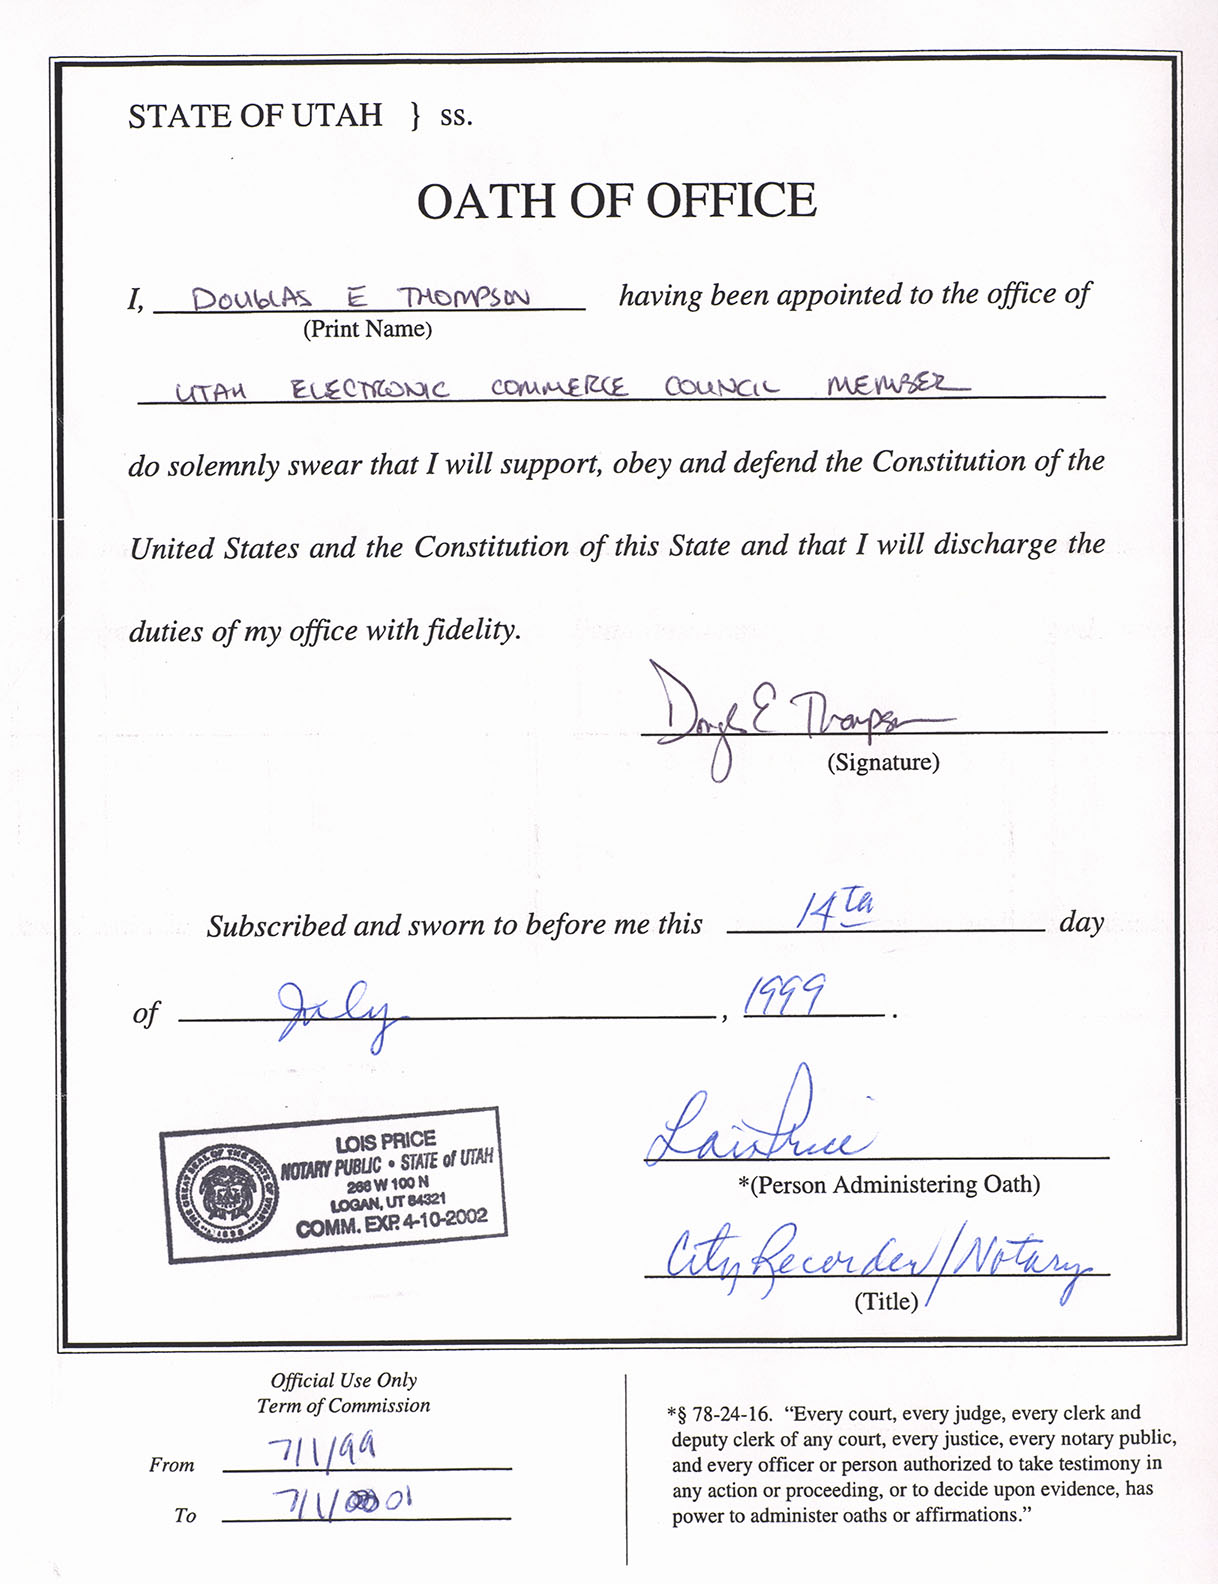 STATE OF UTAH } ss.
OATH OF OFFICE
I, DOUGLAS E THOMPSON having been appointed to the office of
(Print Name)
UTAH ELECTRONIC COMMERCE COUNCIL MEMBER
do solemnly swear that I will support, obey and defend the Constitution of the
United States and the Constitution of this State and that I will discharge the
duties of my office with fidelity.
Dougls E Thompson
(Signature)
Subscribed and sworn to before me this 14th day
of July, 1999.
LOIS PRICE
NOTARY PUBLIC • STATE of UTAH
266 W 100 N
LOGAN, UT 84321
COMM. EXP. 4-10-2002
THE GREAT SEAL OF THE STATE OF UTAH
1896
Lois Price
*(Person Administering Oath)
City Recorder/Notary
(Title)
Official Use Only
Term of Commission
From 7/1/99
To 7/1/01
*§ 78-24-16. “Every court, every judge, every clerk and
deputy clerk of any court, every justice, every notary public,
and every officer or person authorized to take testimony in
any action or proceeding, or to decide upon evidence, has
power to administer oaths or affirmations.”